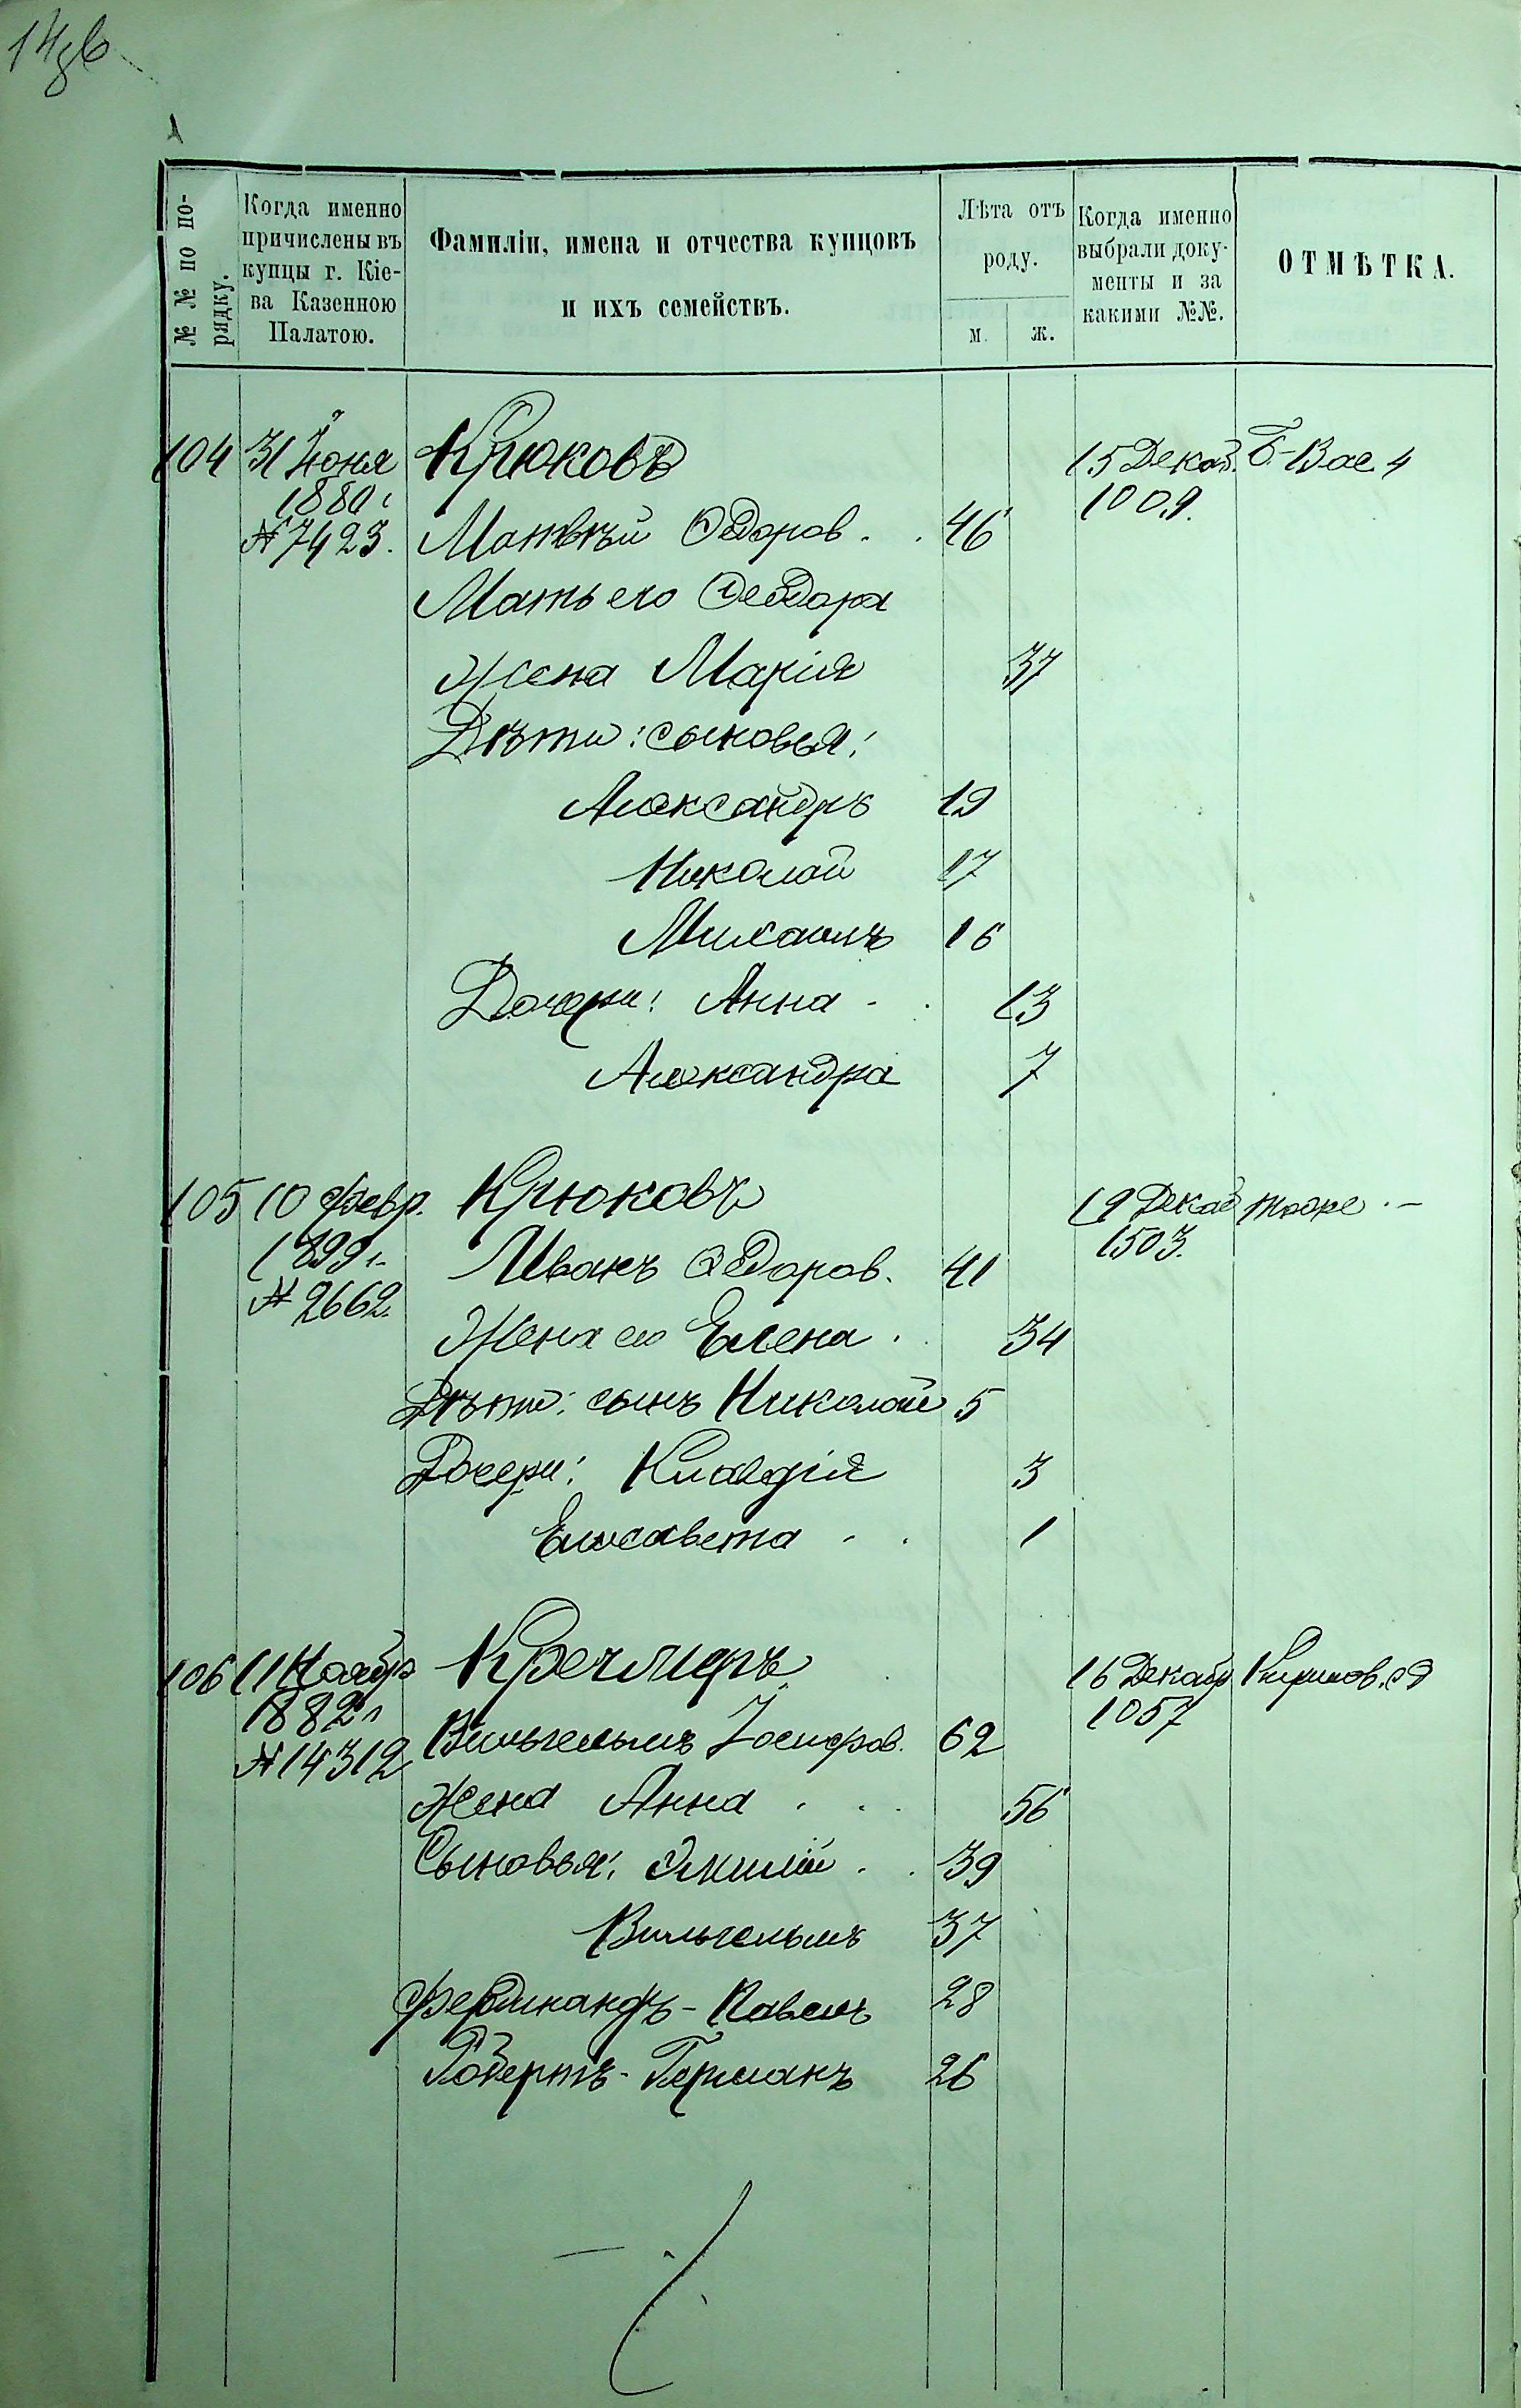 14зв
№ № по по-
рядку.
Когда именно
причислены въ
купцы г. Кіе-
ва Казенною
Палатою.
Фамиліи, имена и отчества купцовъ
и ихъ семействъ.
Лѣта отъ
роду.
м.
ж.
Когда именно
выбрали доку-
менты и за
какими №№.
ОТМѢТКА.
104 31 Іюня Крюковъ 15 Декаб. Б-Вас. 4
1880 г 1009.
№ 7423. Матвѣй Ѳедоров. . 46
Мать его Ѳеодора
Жена Марія 37
Дѣти: сыновья:
Александръ 19
Николай 17
Михаилъ 16
Дочери: Анна - . 13
Александра 7
105 10 февр. Крюковъ 19 Декаб тоже . -
1899 г. 1503.
Иванъ Ѳедоров. 41
№ 2662.
Жена его Елена . 34
Дѣти: сынъ Николай 5
Дочери: Клавдія 3
Елисавета - . 1
106 11 Ноябр Кречмеръ 16 Декабр Кирилов. 29
1882 г 1057
№ 14312 Вильгельмъ Іосифов. 62
Жена Анна . . . 56
Сыновья: Эмилій . . 39
Вильгельмъ 37
Фердинандъ-Павелъ 28
Робертъ-Германъ 26